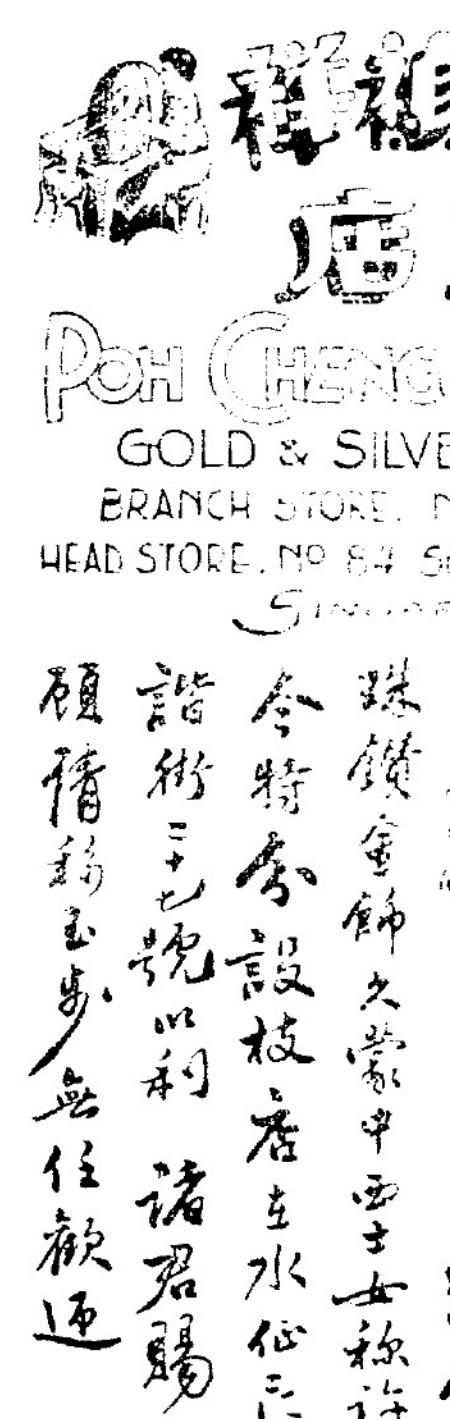 店
POH CHENG
GOLD & SILVE
BRANCH STORE. N
HEAD STORE. No 84 S
珠鑽金飾久蒙中西士女稱許
今特分設枝店在水仙
諧街二十七號以利 諸君賜
顧請移玉步無任歡迎